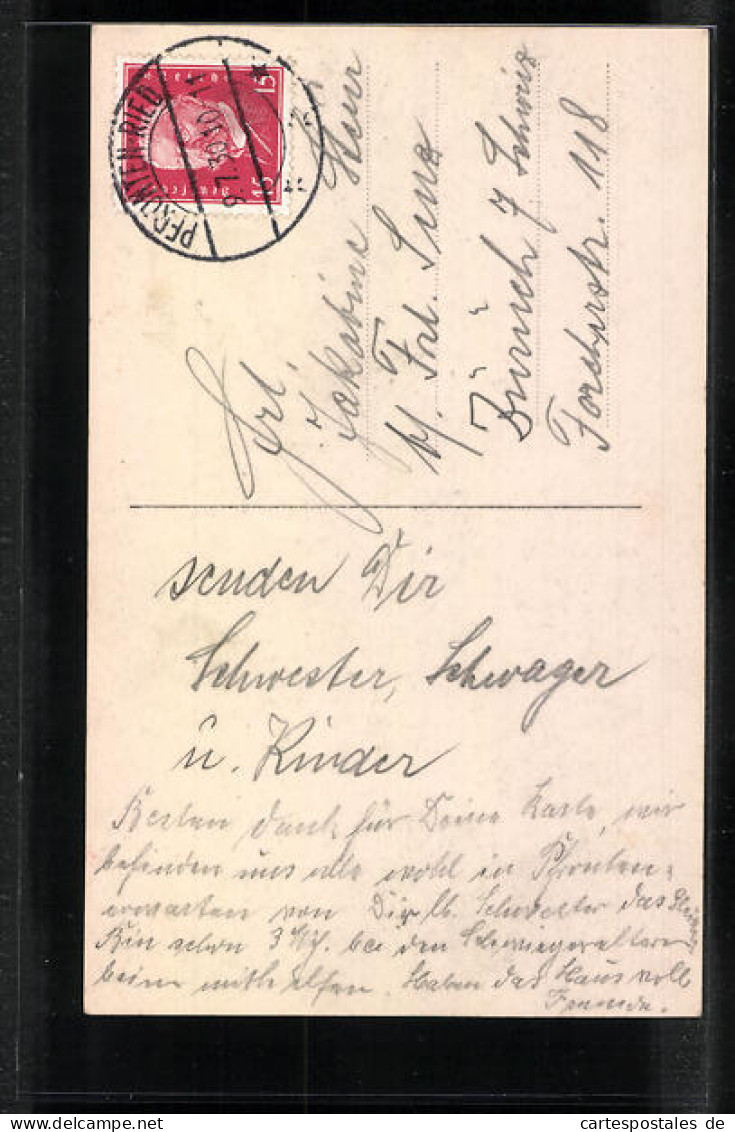 PFRONTEN-RIED
6.7.30.10-11
15
15
Frl.
Jakobine Herr
b/. Ford. Senz
Zürich 7 Schweiz
Forchstr. 118
senden Dir
Schwester, Schwager
u. Kinder
Besten Dank für Deine Karte, wir
befinden uns alle wohl in Pfronten
erwarten von Dir lb. Schwester das
Bin schon 3 bei den Schwiegereltern
beim mithelfen. Haben das Haus voll
Fremde.
cartespostales de